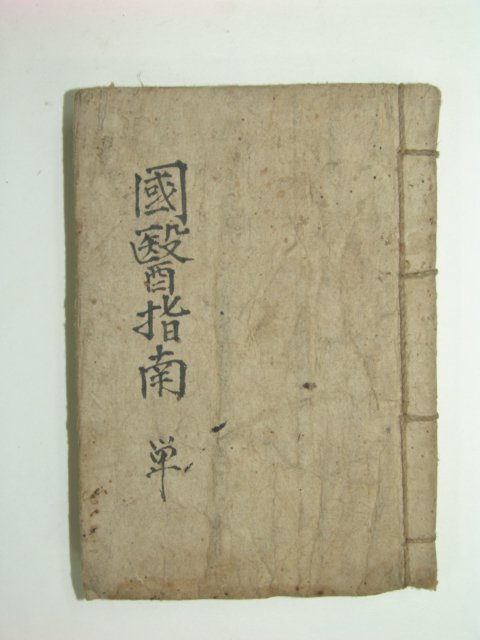 國醫指南 単